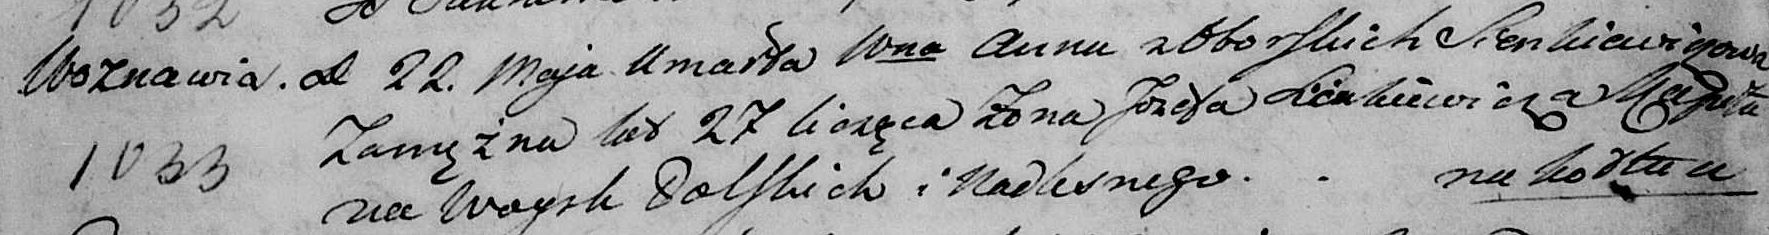 1032
Woznawia. d 22. Maja Umarła Wna Anna z Oborskich Sienkiewiczowa
1033 Zamężna lat 27 licząca Żona Józefa Sienkiewicza Kapita
na Woysk Polskich i Nadlesnego. . na kołtun